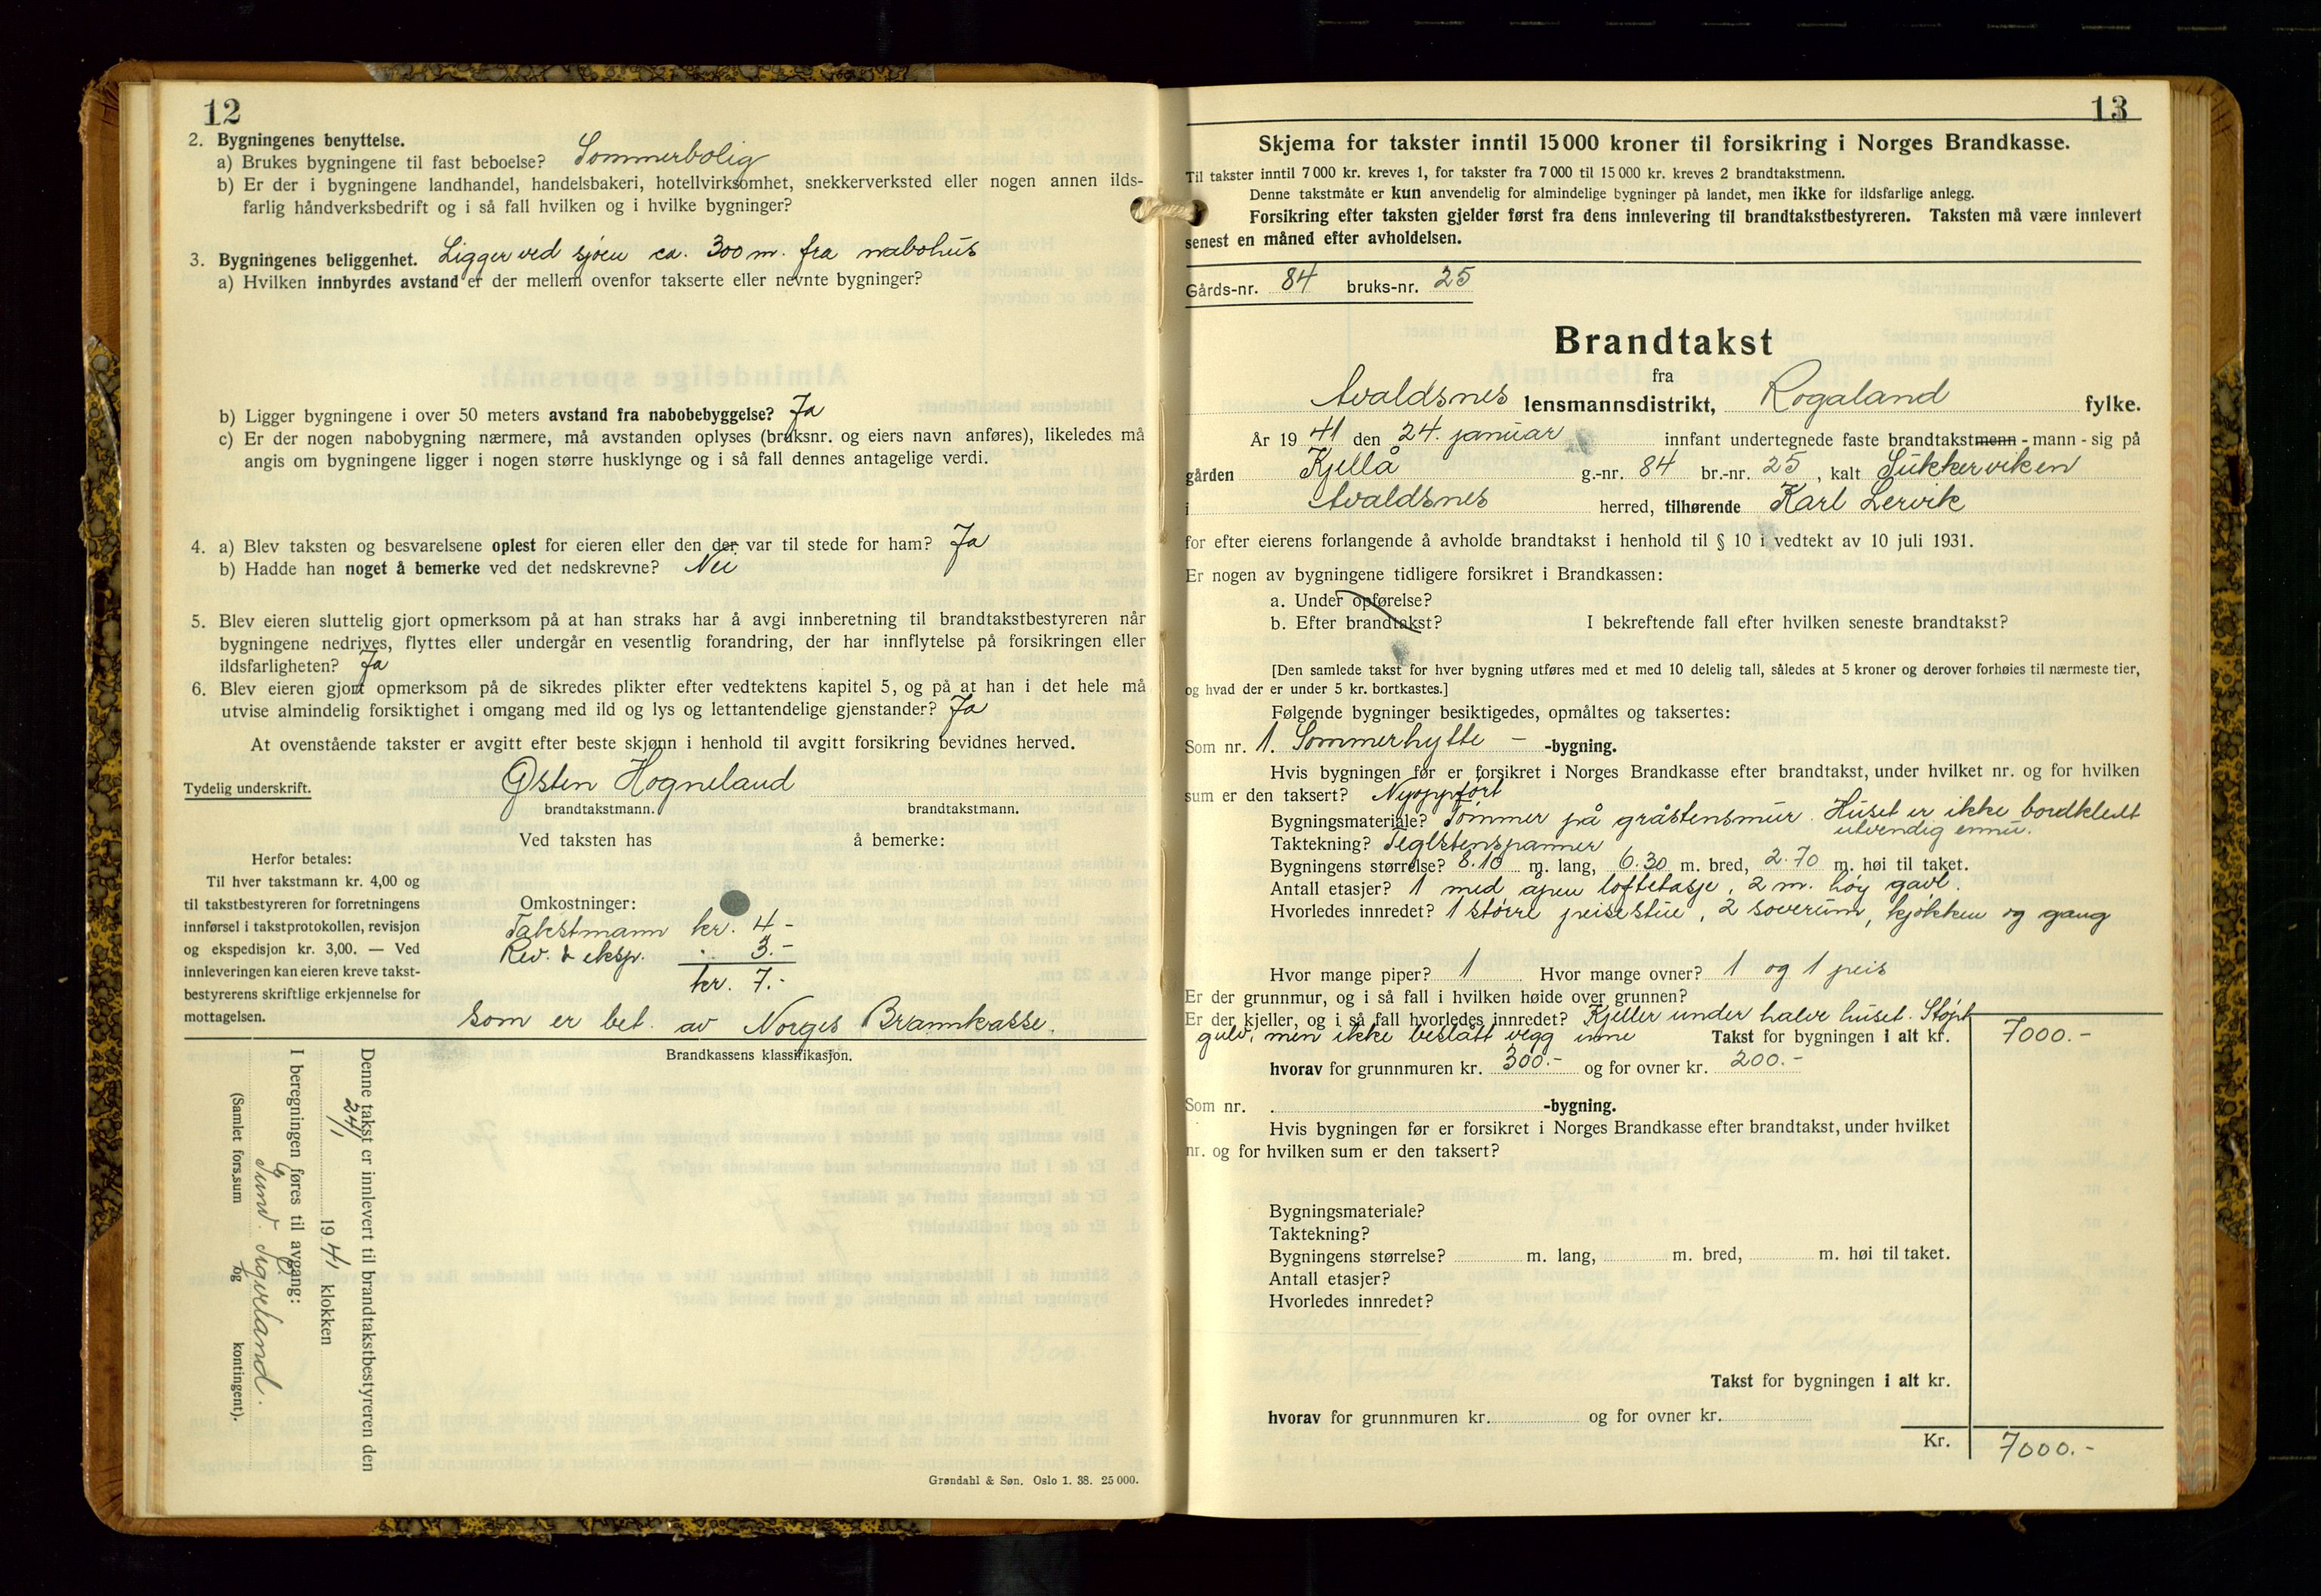 12
2. Bygningenes benyttelse.
a) Brukes bygningene til fast beboelse? Sommerbolig
b) Er der i bygningene landhandel, handelsbakeri, hotellvirksomhet, snekkerverksted eller nogen annen ilds-
farlig håndverksbedrift og i så fall hvilken og i hvilke bygninger?
3. Bygningenes beliggenhet. Ligger ved sjøen ca. 300 m. fra nabohus
a) Hvilken innbyrdes avstand er der mellem ovenfor takserte eller nevnte bygninger?
b) Ligger bygningene i over 50 meters avstand fra nabobebyggelse? Ja
c) Er der nogen nabobygning nærmere, må avstanden oplyses (bruksnr. og eiers navn anføres), likeledes må
angis om bygningene ligger i nogen større husklynge og i så fall dennes antagelige verdi.
4. a) Blev taksten og besvarelsene oplest for eieren eller den der var til stede for ham? Ja
b) Hadde han noget å bemerke ved det nedskrevne? Nei
5. Blev eieren sluttelig gjort opmerksom på at han straks har å avgi innberetning til brandtakstbestyreren når
bygningene nedrives, flyttes eller undergår en vesentlig forandring, der har innflytelse på forsikringen eller
ildsfarligheten? Ja
6. Blev eieren gjort opmerksom på de sikredes plikter efter vedtektens kapitel 5, og på at han i det hele må
utvise almindelig forsiktighet i omgang med ild og lys og lettantendelige gjenstander? Ja
At ovenstående takster er avgitt efter beste skjønn i henhold til avgitt forsikring bevidnes herved.
Tydelig underskrift. Østen Hogneland
brandtakstmann. brandtakstmann.
Ved taksten has å bemerke:
Herfor betales:
Til hver takstmann kr. 4,00 og
til takstbestyreren for forretningens
innførsel i takstprotokollen, revisjon
og ekspedisjon kr. 3,00. — Ved
innleveringen kan eieren kreve takst-
bestyrerens skriftlige erkjennelse for
mottagelsen.
Omkostninger:
Takstmann kr. 4 -
Rev. & eksp. " 3.-
kr. 7.-
som er bet. av Norges Brannkasse.
Brandkassens klassifikasjon.
Denne takst er innlevert til brandtakstbestyreren den
24/1 1941 klokken
I beregningen føres til avgang:
Sund. Sigveland.
(Samlet fors.sum og kontingent).
Grøndahl & Søn. Oslo 1. 38. 25 000.
13
Skjema for takster inntil 15 000 kroner til forsikring i Norges Brandkasse.
Til takster inntil 7 000 kr. kreves 1, for takster fra 7 000 til 15 000 kr. kreves 2 brandtakstmenn.
Denne takstmåte er kun anvendelig for almindelige bygninger på landet, men ikke for ildsfarlige anlegg.
Forsikring efter taksten gjelder først fra dens innlevering til brandtakstbestyreren. Taksten må være innlevert
senest en måned efter avholdelsen.
Gårds-nr. 84 bruks-nr. 25
Brandtakst
fra
Avaldsnes lensmannsdistrikt, Rogaland fylke.
År 1941 den 24. januar innfant undertegnede faste brandtakstmenn - mann - sig på
gården Kjellå g.-nr. 84 br.-nr. 25, kalt Sukkerviken
i Avaldsnes herred, tilhørende Karl Lervik
for efter eierens forlangende å avholde brandtakst i henhold til § 10 i vedtekt av 10 juli 1931.
Er nogen av bygningene tidligere forsikret i Brandkassen:
a. Under opførelse?
b. Efter brandtakst? I bekreftende fall efter hvilken seneste brandtakst?
[Den samlede takst for hver bygning utføres med et med 10 delelig tall, således at 5 kroner og derover forhøies til nærmeste tier,
og hvad der er under 5 kr. bortkastes.]
Følgende bygninger besiktigedes, opmåltes og taksertes:
Som nr. 1. Sommerhytte — -bygning.
Hvis bygningen før er forsikret i Norges Brandkasse efter brandtakst, under hvilket nr. og for hvilken
sum er den taksert? Nyoppført
Bygningsmateriale? Tømmer på gråstensmur. Huset er ikke bordkledt
utvendig ennu.
Taktekning? Teglstenspanner
Bygningens størrelse? 8.10 m. lang, 6.30 m. bred, 2.70 m. høi til taket.
Antall etasjer? 1 med åpen loftetasje, 2 m. høy gavl.
Hvorledes innredet? 1 større peisestue, 2 soverum, kjøkken og gang
Hvor mange piper? 1 Hvor mange ovner? 1 og 1 peis
Er der grunnmur, og i så fall i hvilken høide over grunnen?
Er der kjeller, og i så fall hvorledes innredet? Kjeller under halve huset. Støpt
gulv, men ikke beslått vegg inne Takst for bygningen i alt kr. 7000.-
hvorav for grunnmuren kr. 300.- og for ovner kr. 200.-
Som nr. -bygning.
Hvis bygningen før er forsikret i Norges Brandkasse efter brandtakst, under hvilket
nr. og for hvilken sum er den taksert?
Bygningsmateriale?
Taktekning?
Bygningens størrelse? m. lang, m. bred, m. høi til taket.
Antall etasjer?
Hvorledes innredet?
Takst for bygningen i alt kr.
hvorav for grunnmuren kr. og for ovner kr.
Kr. 7000.-